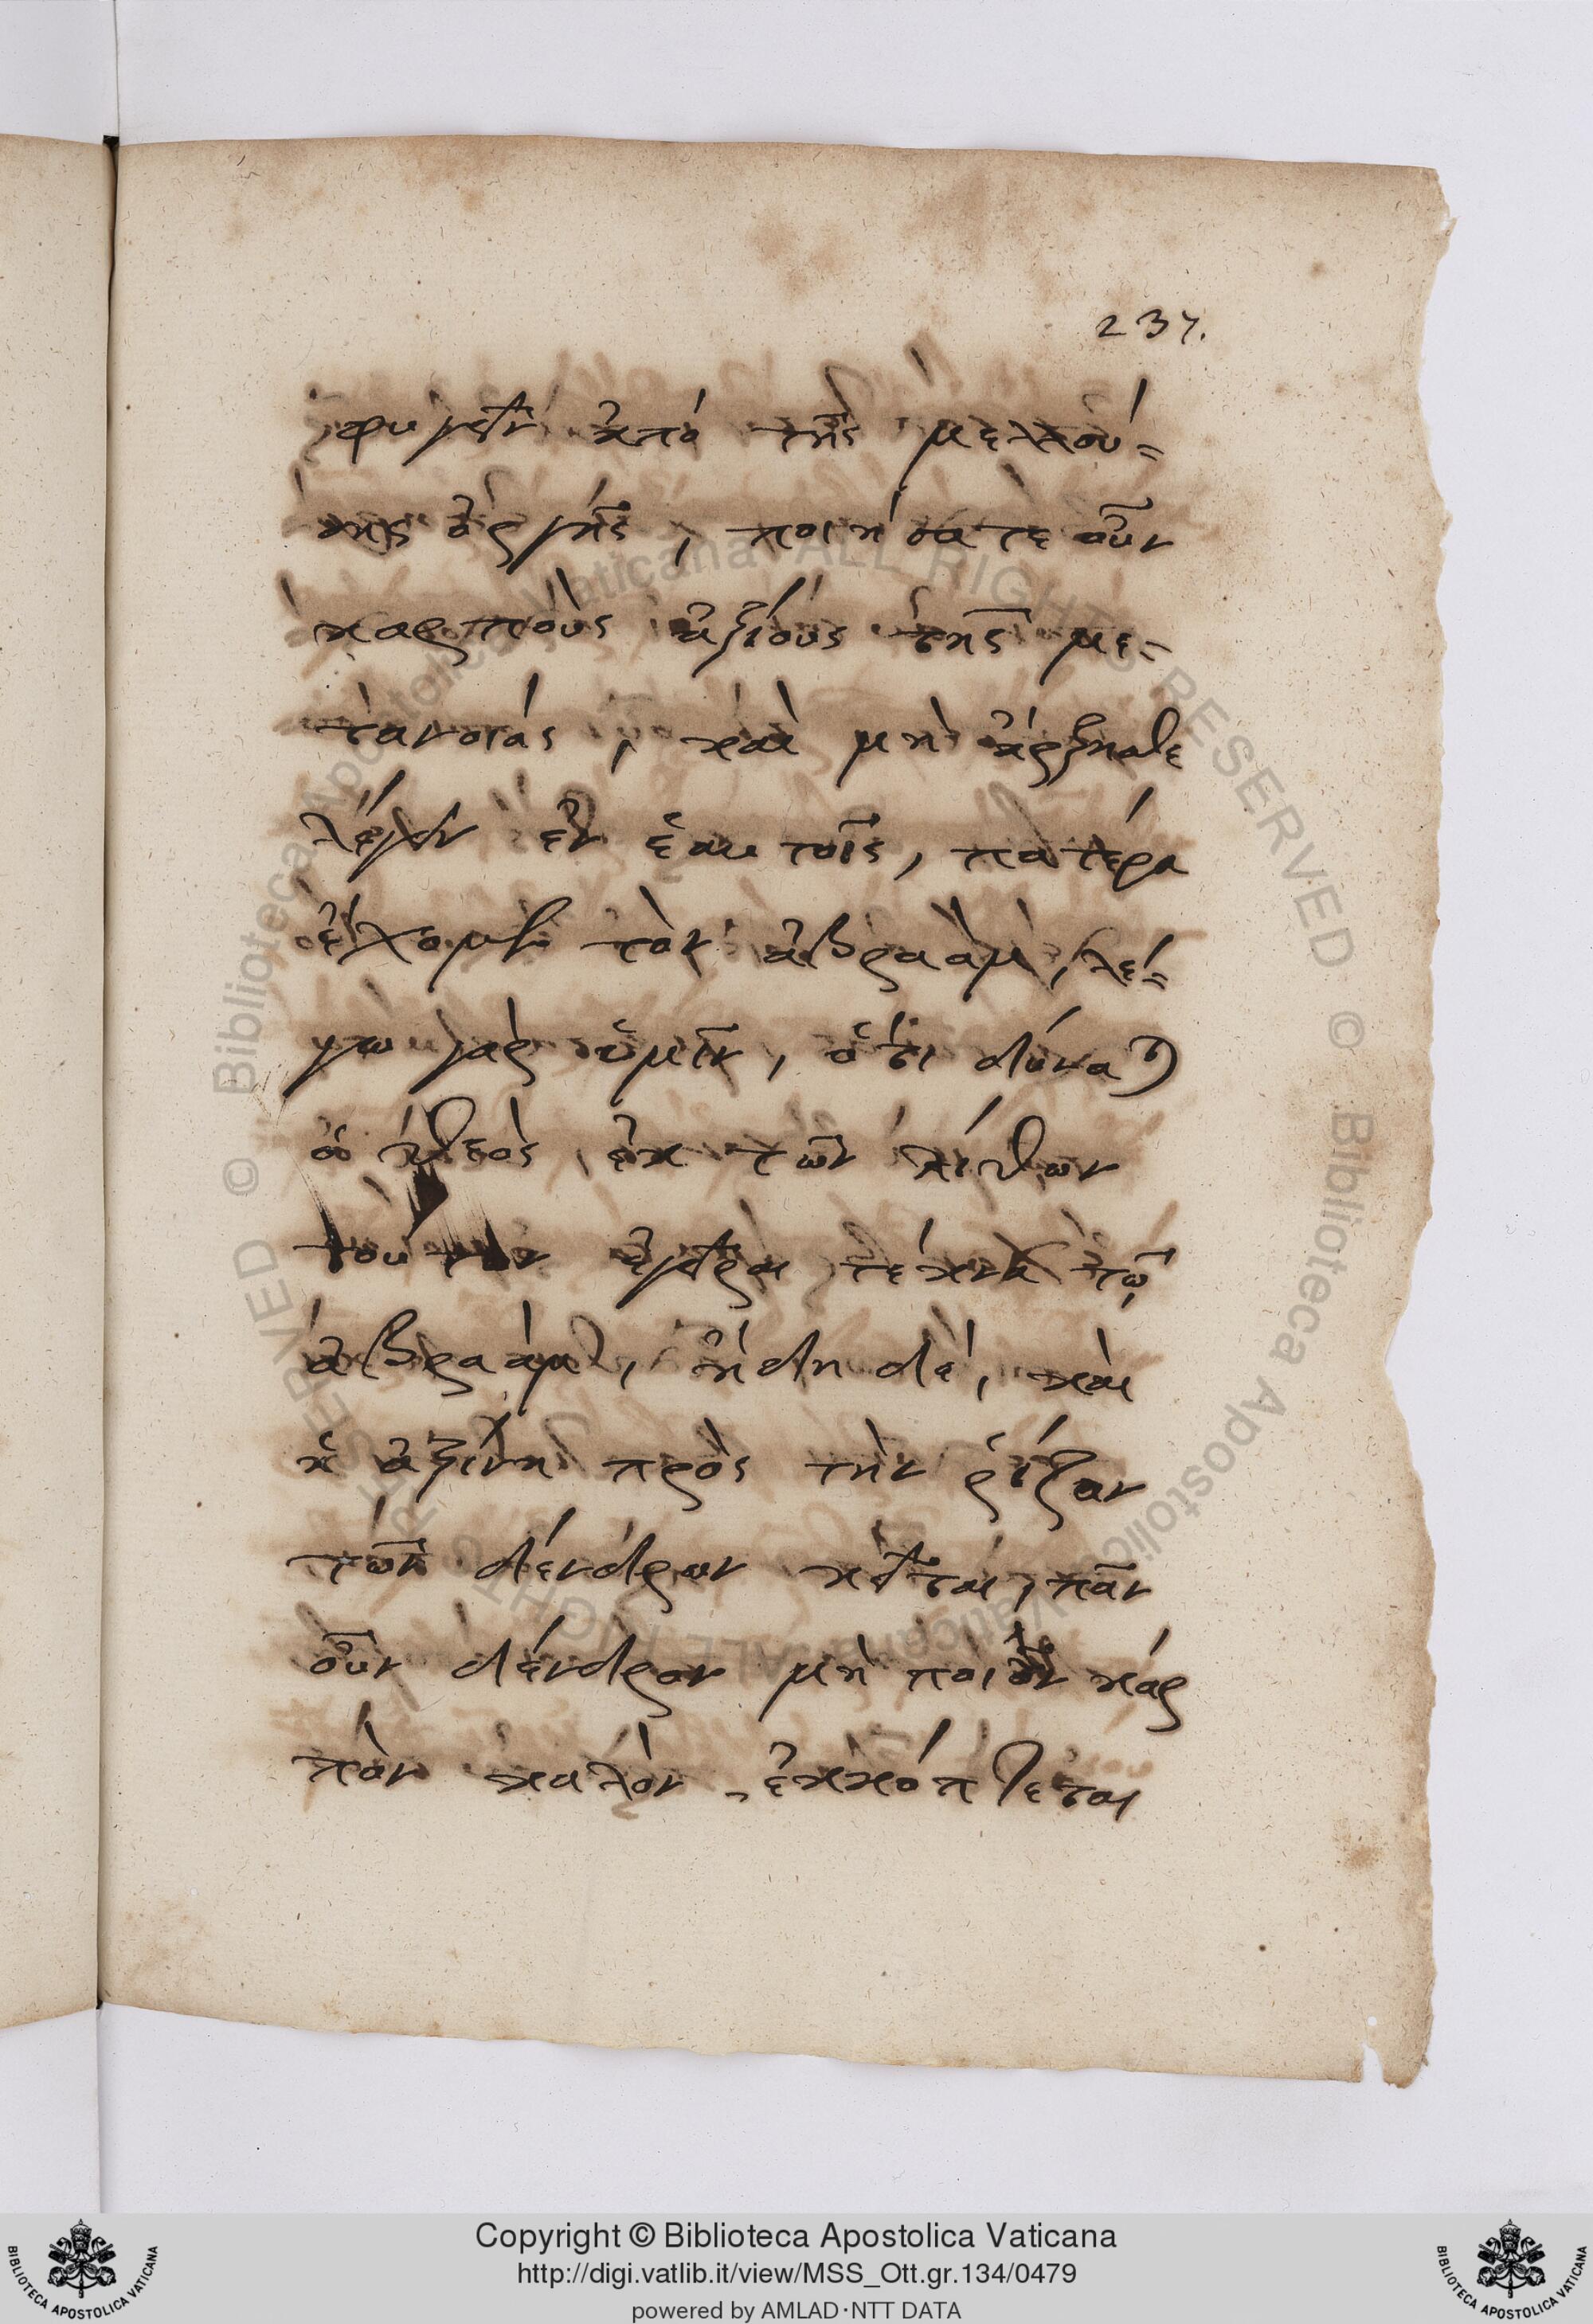 237.
φυγεῖν ἀπὸ τῆς μελλού=
σης ὀργῆς, ποιήσατε οὖν
καρποὺς ἀξίους τῆς με=
τανοίας, καὶ μὴ ἄρξησθε
λέγειν ἐν ἑαυτοῖς, πατέρα
ἔχομεν τὸν ἀβραάμ, λέ=
γω γὰρ ὑμῖν, ὅτι δύναται
ὁ θεὸς ἐκ τῶν λίθων
τούτων ἐγεῖραι τέκνα τῷ
ἀβραάμ, ἤδη δέ, καὶ
ἡ ἀξίνη πρὸς τὴν ῥίζαν
τῶν δένδρων κεῖται, πᾶν
οὖν δένδρον μὴ ποιοῦν καρ
πὸν καλὸν, ἐκκόπτεται
© Biblioteca Apostolica Vaticana ALL RIGHTS RESERVED © Biblioteca Apostolica Vaticana ALL RIGHTS RESERVED
Copyright © Biblioteca Apostolica Vaticana
http://digi.vatlib.it/view/MSS_Ott.gr.134/0479
powered by AMLAD·NTT DATA
BIBLIOTECA APOSTOLICA VATICANA
BIBLIOTECA APOSTOLICA VATICANA